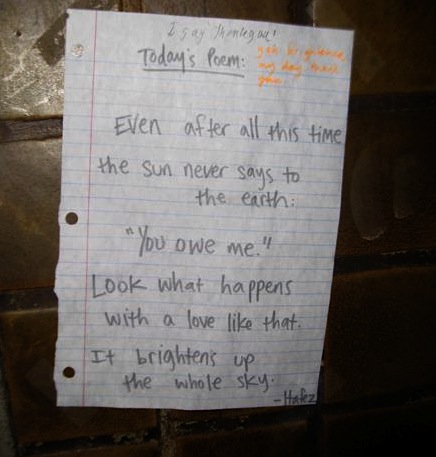 I say Thank you!
Today's Poem:
you brightened
my day thank
you
Even after all this time
the sun never says to
the earth:
"You owe me."
Look what happens
with a love like that.
It brightens up
the whole sky.
-Hafez